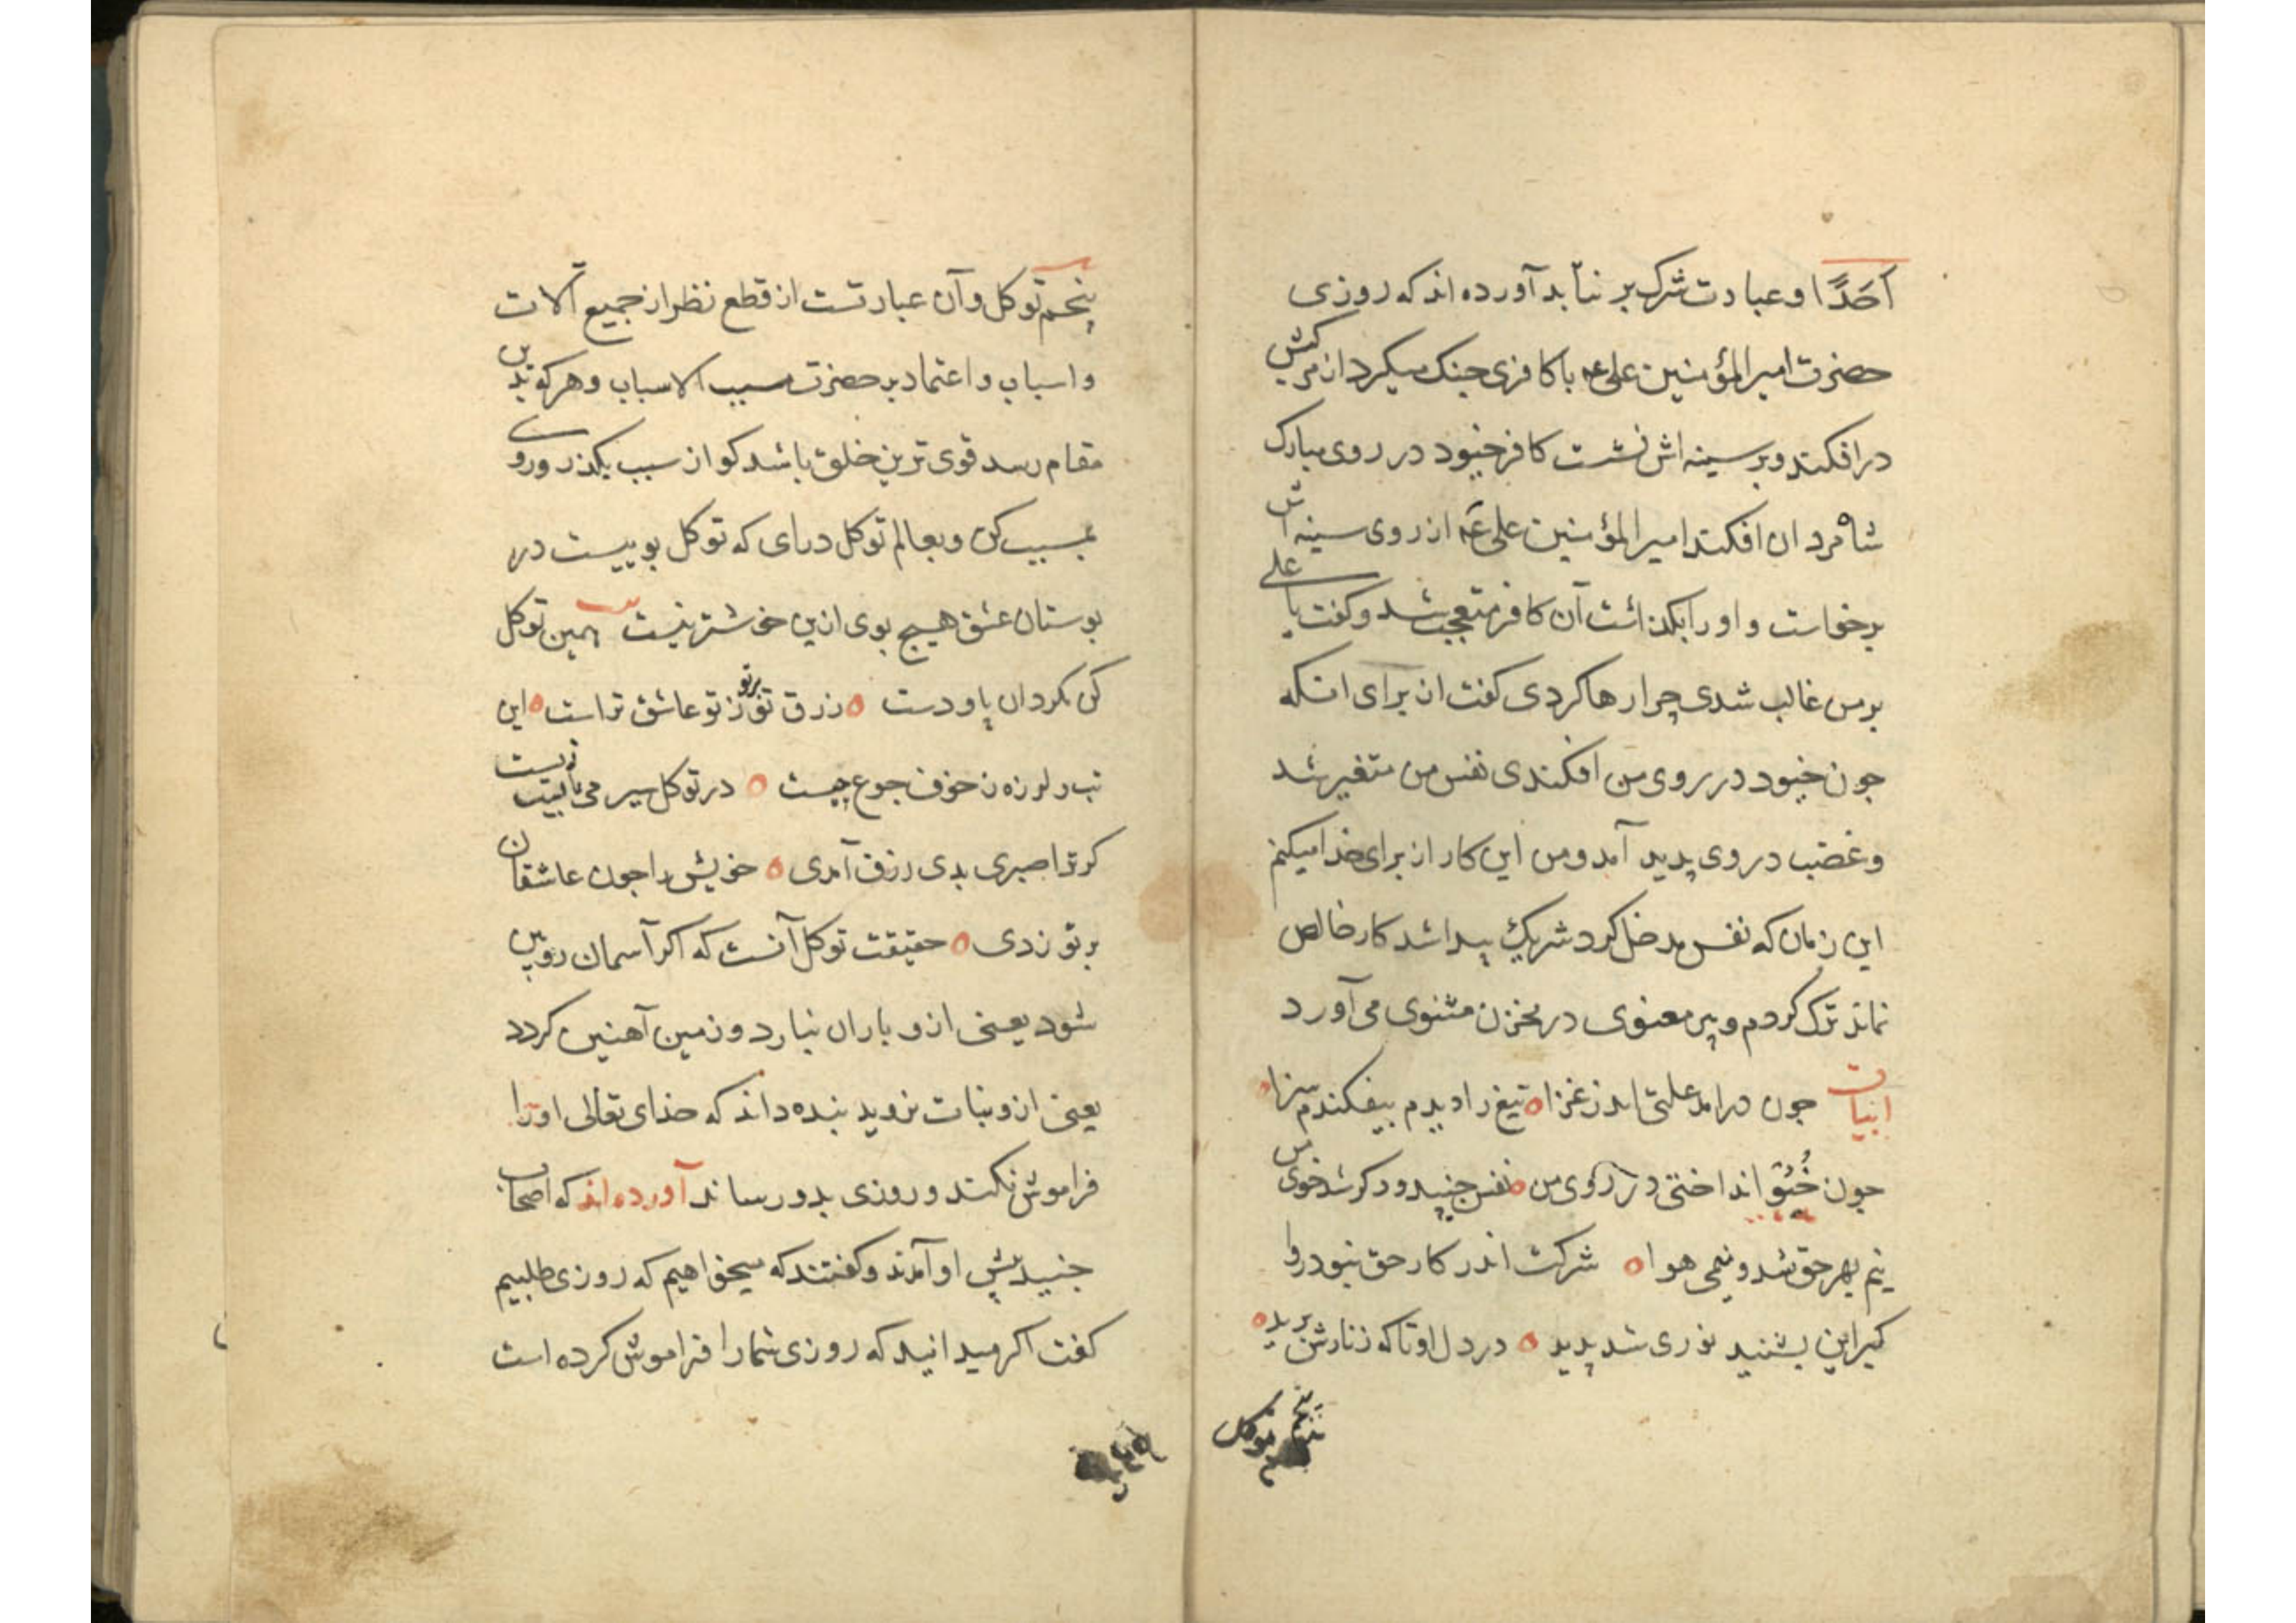 اَحَدًا و عبادت شرک بر نتابد آورده اند که روزی
حضرت امیر المؤمنین علی عه با کافری جنک میکرد از مرکبش
در افکند و بر سینه اش نشست کافر خیود در روی مبارک
شاه مردان افکند امیر المؤمنین علی عه از روی سینه اش
برخواست و او را بکذاشت آن کافر متعجب شد و کفت یا علی
بر من غالب شدی چرا رها کردی کفت از برای انکه
جون خیود در روی من افکندی نفس من متغیر شد
و غضب در وی پدید آمد و من این کار از برای خدا میکنم
این زمان که نفس مدخل کرد شریک پیدا شد کار خالص
نماند ترک کردم و پیر معنوی در مخزن مثنوی می آورد
ابیات جون درامد علتی اندر غزا ه تیغ را دیدم بیفکندم سزا ه
جون خُیُو انداختی در روی من ه نفس جنبید و دکر شد خوی من
نیم بهر حق شد و نیمی هوا ه شرکت اندر کار حق نبود روا
کبر این بشنید نوری شد پدید ه در دل او تا که زنارش برید ه
پنجم توکل
پنجم توکل و آن عبارتست از قطع نظر از جمیع آلات
و اسباب و اعتماد بر حضرت مسبب الاسباب و هر که بدین
مقام رسد قوی ترین خلق باشد کو از سبب بکذر و روی
بمسبب کن و بعالم توکل درای که توکل بوییست در
بوستان عشق هیچ بوی ازین خوشتر نیست همین توکل
کن مکردان پا و دست ه رزق تو بر تو ز تو عاشق تراست ه این
تب و لرزه ز خوف جوع چیست ه در توکل سیر می تانیت زیست
کر ترا صبری بدی رزق آمدی ه خویش را جون عاشقان
بر تو زدی ه حقیقت توکل آنست که اکر آسمان رویین
شود یعنی ازو باران نبارد و زمین آهنین کردد
یعنی ازو نبات نروید بنده داند که خدای تعالی او را
فراموش نکند و روزی بدو رساند آورده اند که اصحاب
جنید پیش او آمدند و کفتند که میخواهیم که روزی طلبیم
کفت اکر میدانید که روزی شما را فراموش کرده است